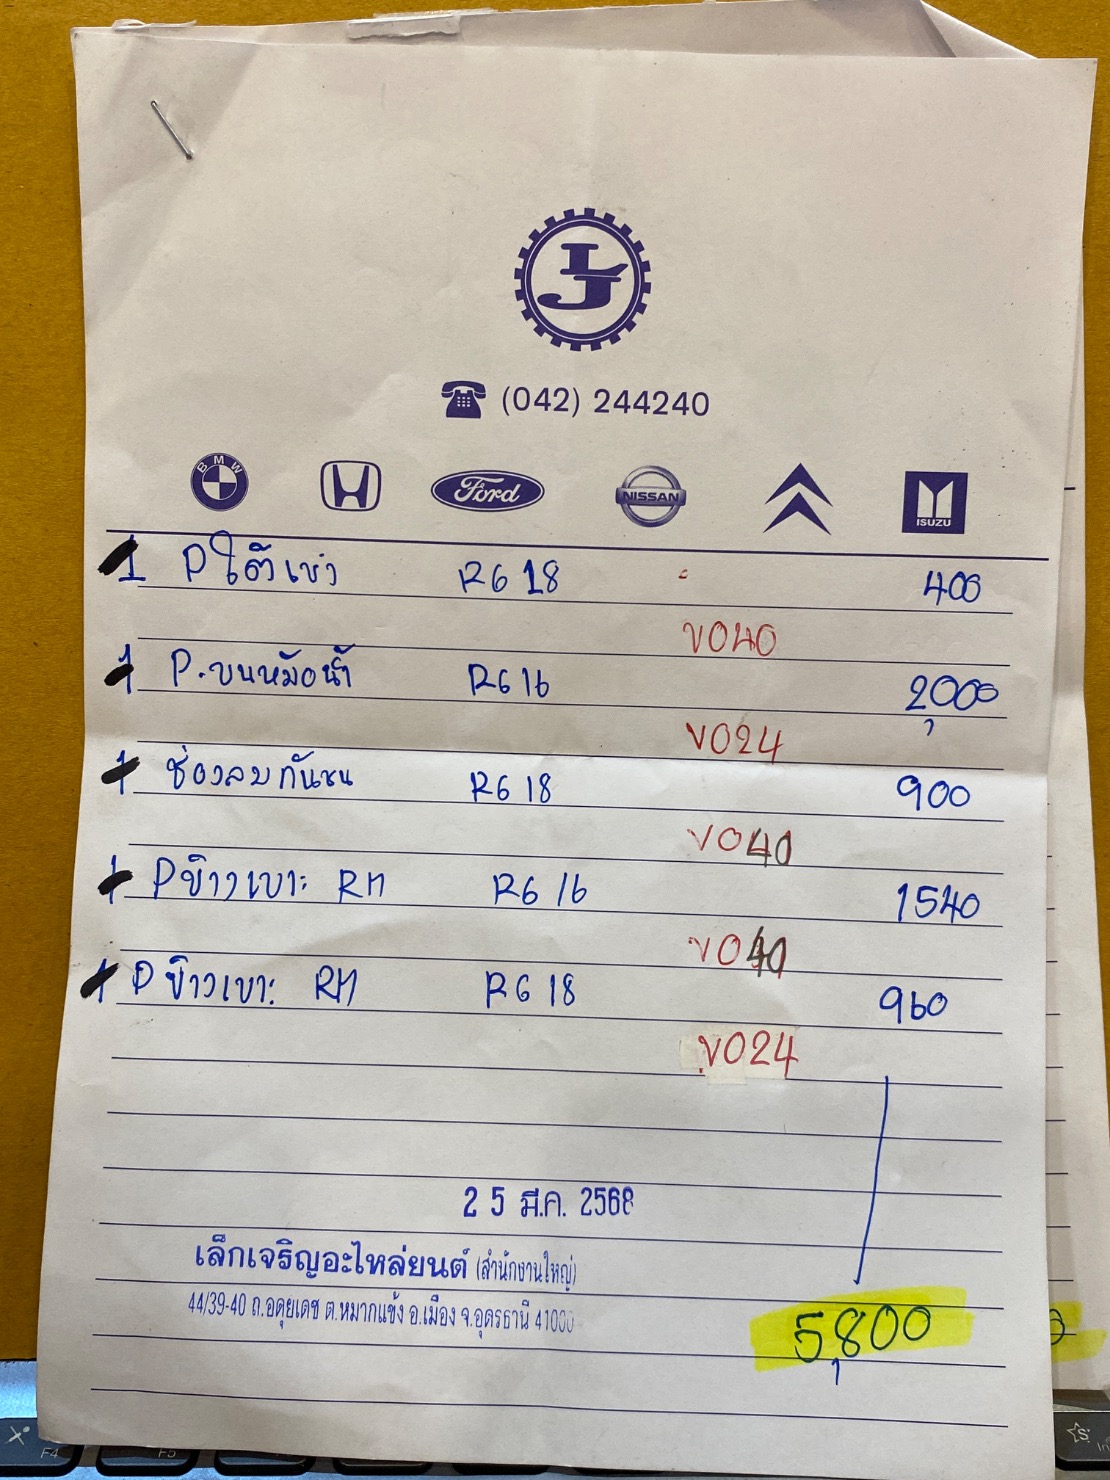 (042) 244240
BMW Ford NISSAN ISUZU
1 Pใต้เข่า R618 400
V040
1 P.บนหม้อน้ำ R616 2,000
V024
1 ช่องลมกันชน R618 900
V040
1 Pข้างเบาะ RH R616 1540
V040
1 Pข้างเบาะ RH R618 960
V024
25 มี.ค. 2568
เล็กเจริญอะไหล่ยนต์ (สำนักงานใหญ่)
44/39-40 ถ.อดุยเดช ต.หมากแข้ง อ.เมือง จ.อุดรธานี 41000
5,800
F4 F5